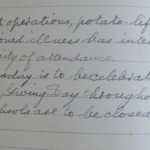 t operations, potato-lif
ioned illness has inter
ity of attendance.
sday is to be celebrat
Sowing Day throughou
hools are to be closed